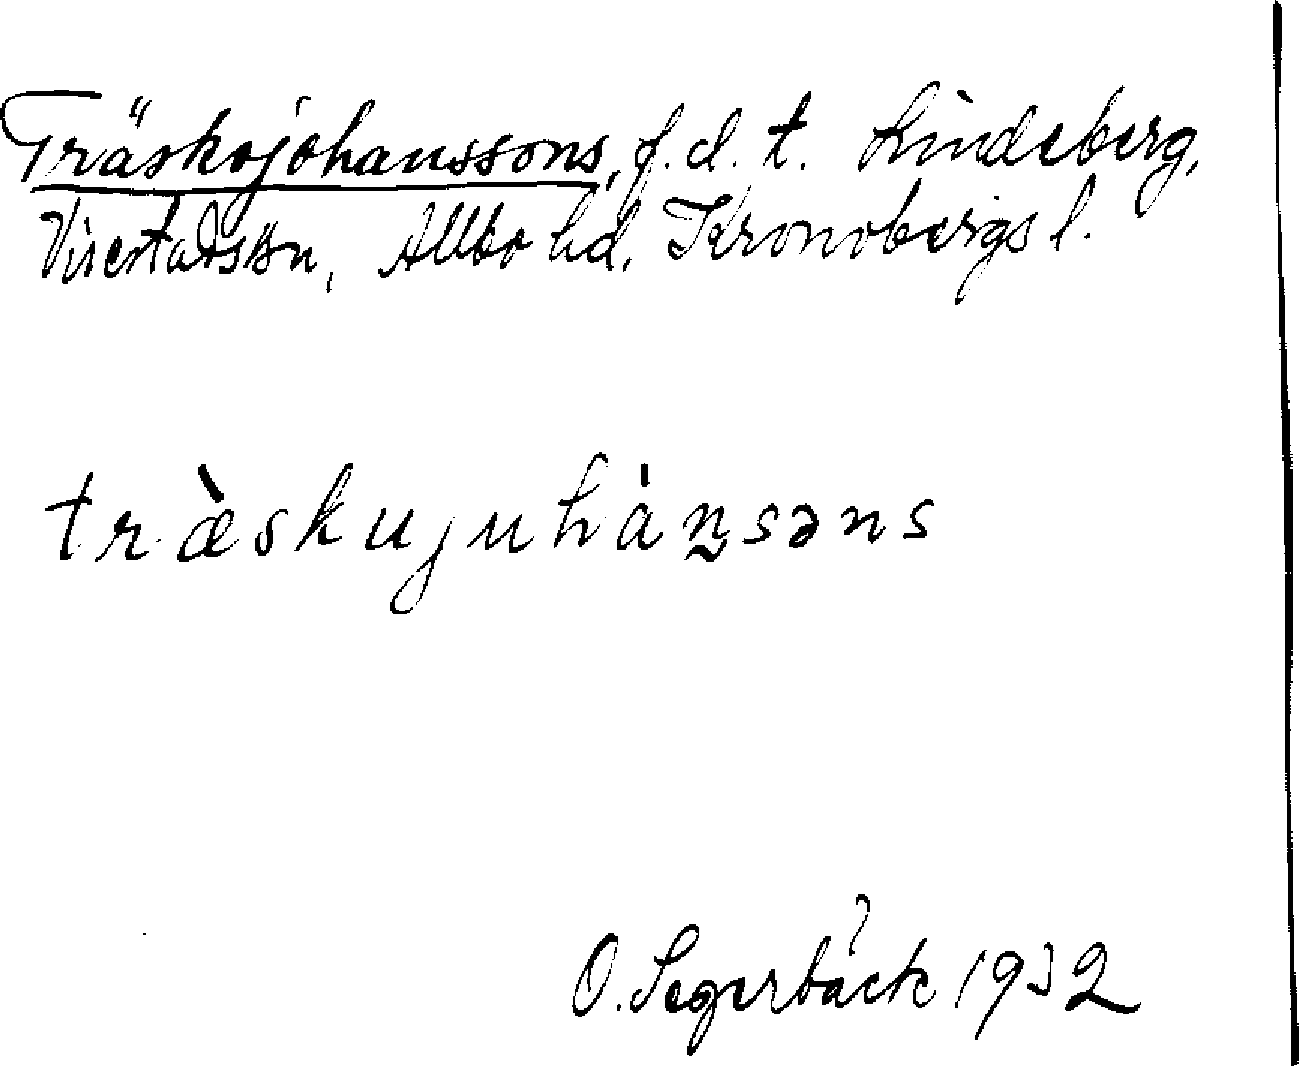 Träskojohanssons, f.d.t. Lindeberg,
Virestads sn, Allbo hd, Kronobergs l.
træ̀skujuhànsəns
O. Segerbäck 1932